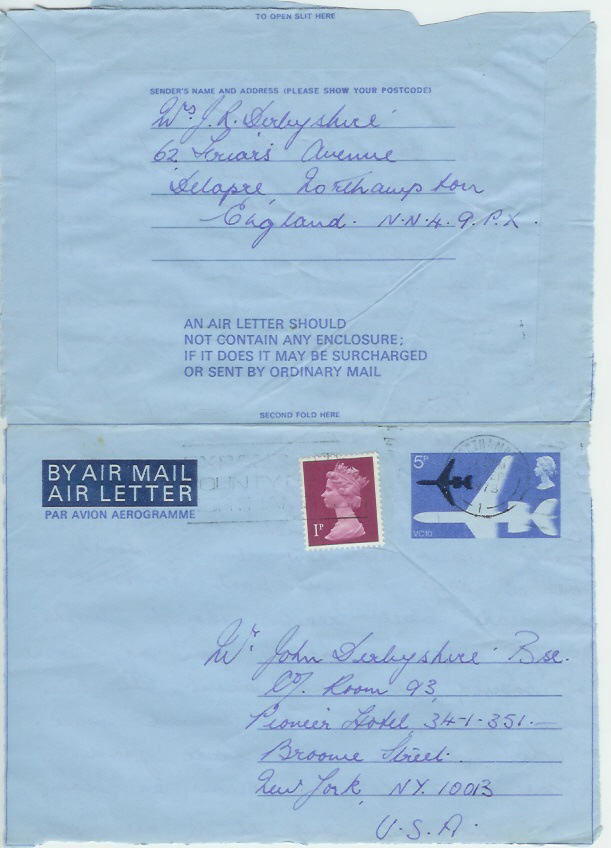 TO OPEN SLIT HERE
SENDER'S NAME AND ADDRESS (PLEASE SHOW YOUR POSTCODE)
Mrs J. R. Derbyshire
62 Friars Avenue
Delapré Northampton
England. N.N.4. 9. P.X.
AN AIR LETTER SHOULD
NOT CONTAIN ANY ENCLOSURE;
IF IT DOES IT MAY BE SURCHARGED
OR SENT BY ORDINARY MAIL
SECOND FOLD HERE
BY AIR MAIL
AIR LETTER
PAR AVION AEROGRAMME
1P
5P
VC10
Mr John Derbyshire Bsc.
C/o. Room 93,
Pioneer Hotel, 34-1-351.—
Broome Street.
New York, NY. 10013
U.S.A.